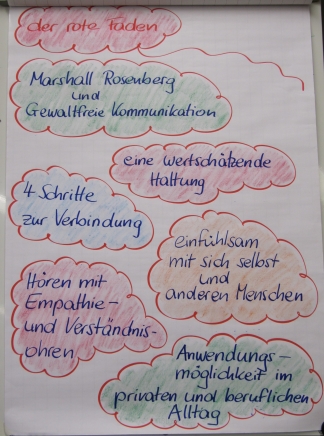 der rote Faden
Marshall Rosenberg
und
Gewaltfreie Kommunikation
eine wertschätzende
Haltung
4 Schritte
zur Verbindung
einfühlsam
mit sich selbst
und
anderen Menschen
Hören mit
Empathie-
und Verständnis-
ohren
Anwendungs-
möglichkeit im
privaten und beruflichen
Alltag